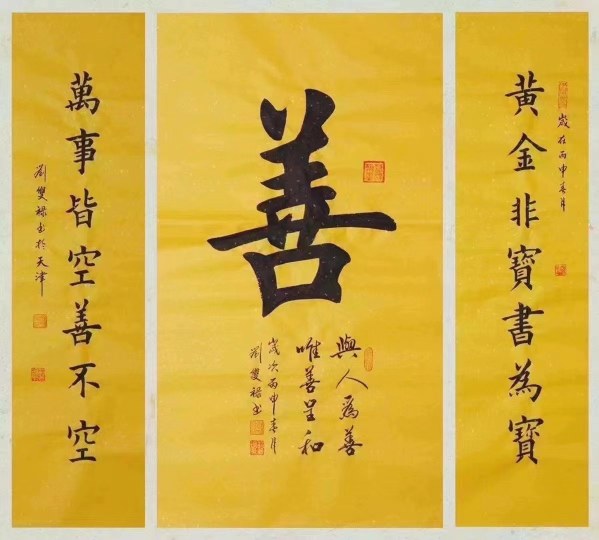 黃金非寶書為寶
歲在丙申春月
善
與人為善
唯善呈和
歲次丙申春月
劉雙祿書
萬事皆空善不空
劉雙祿書於天津